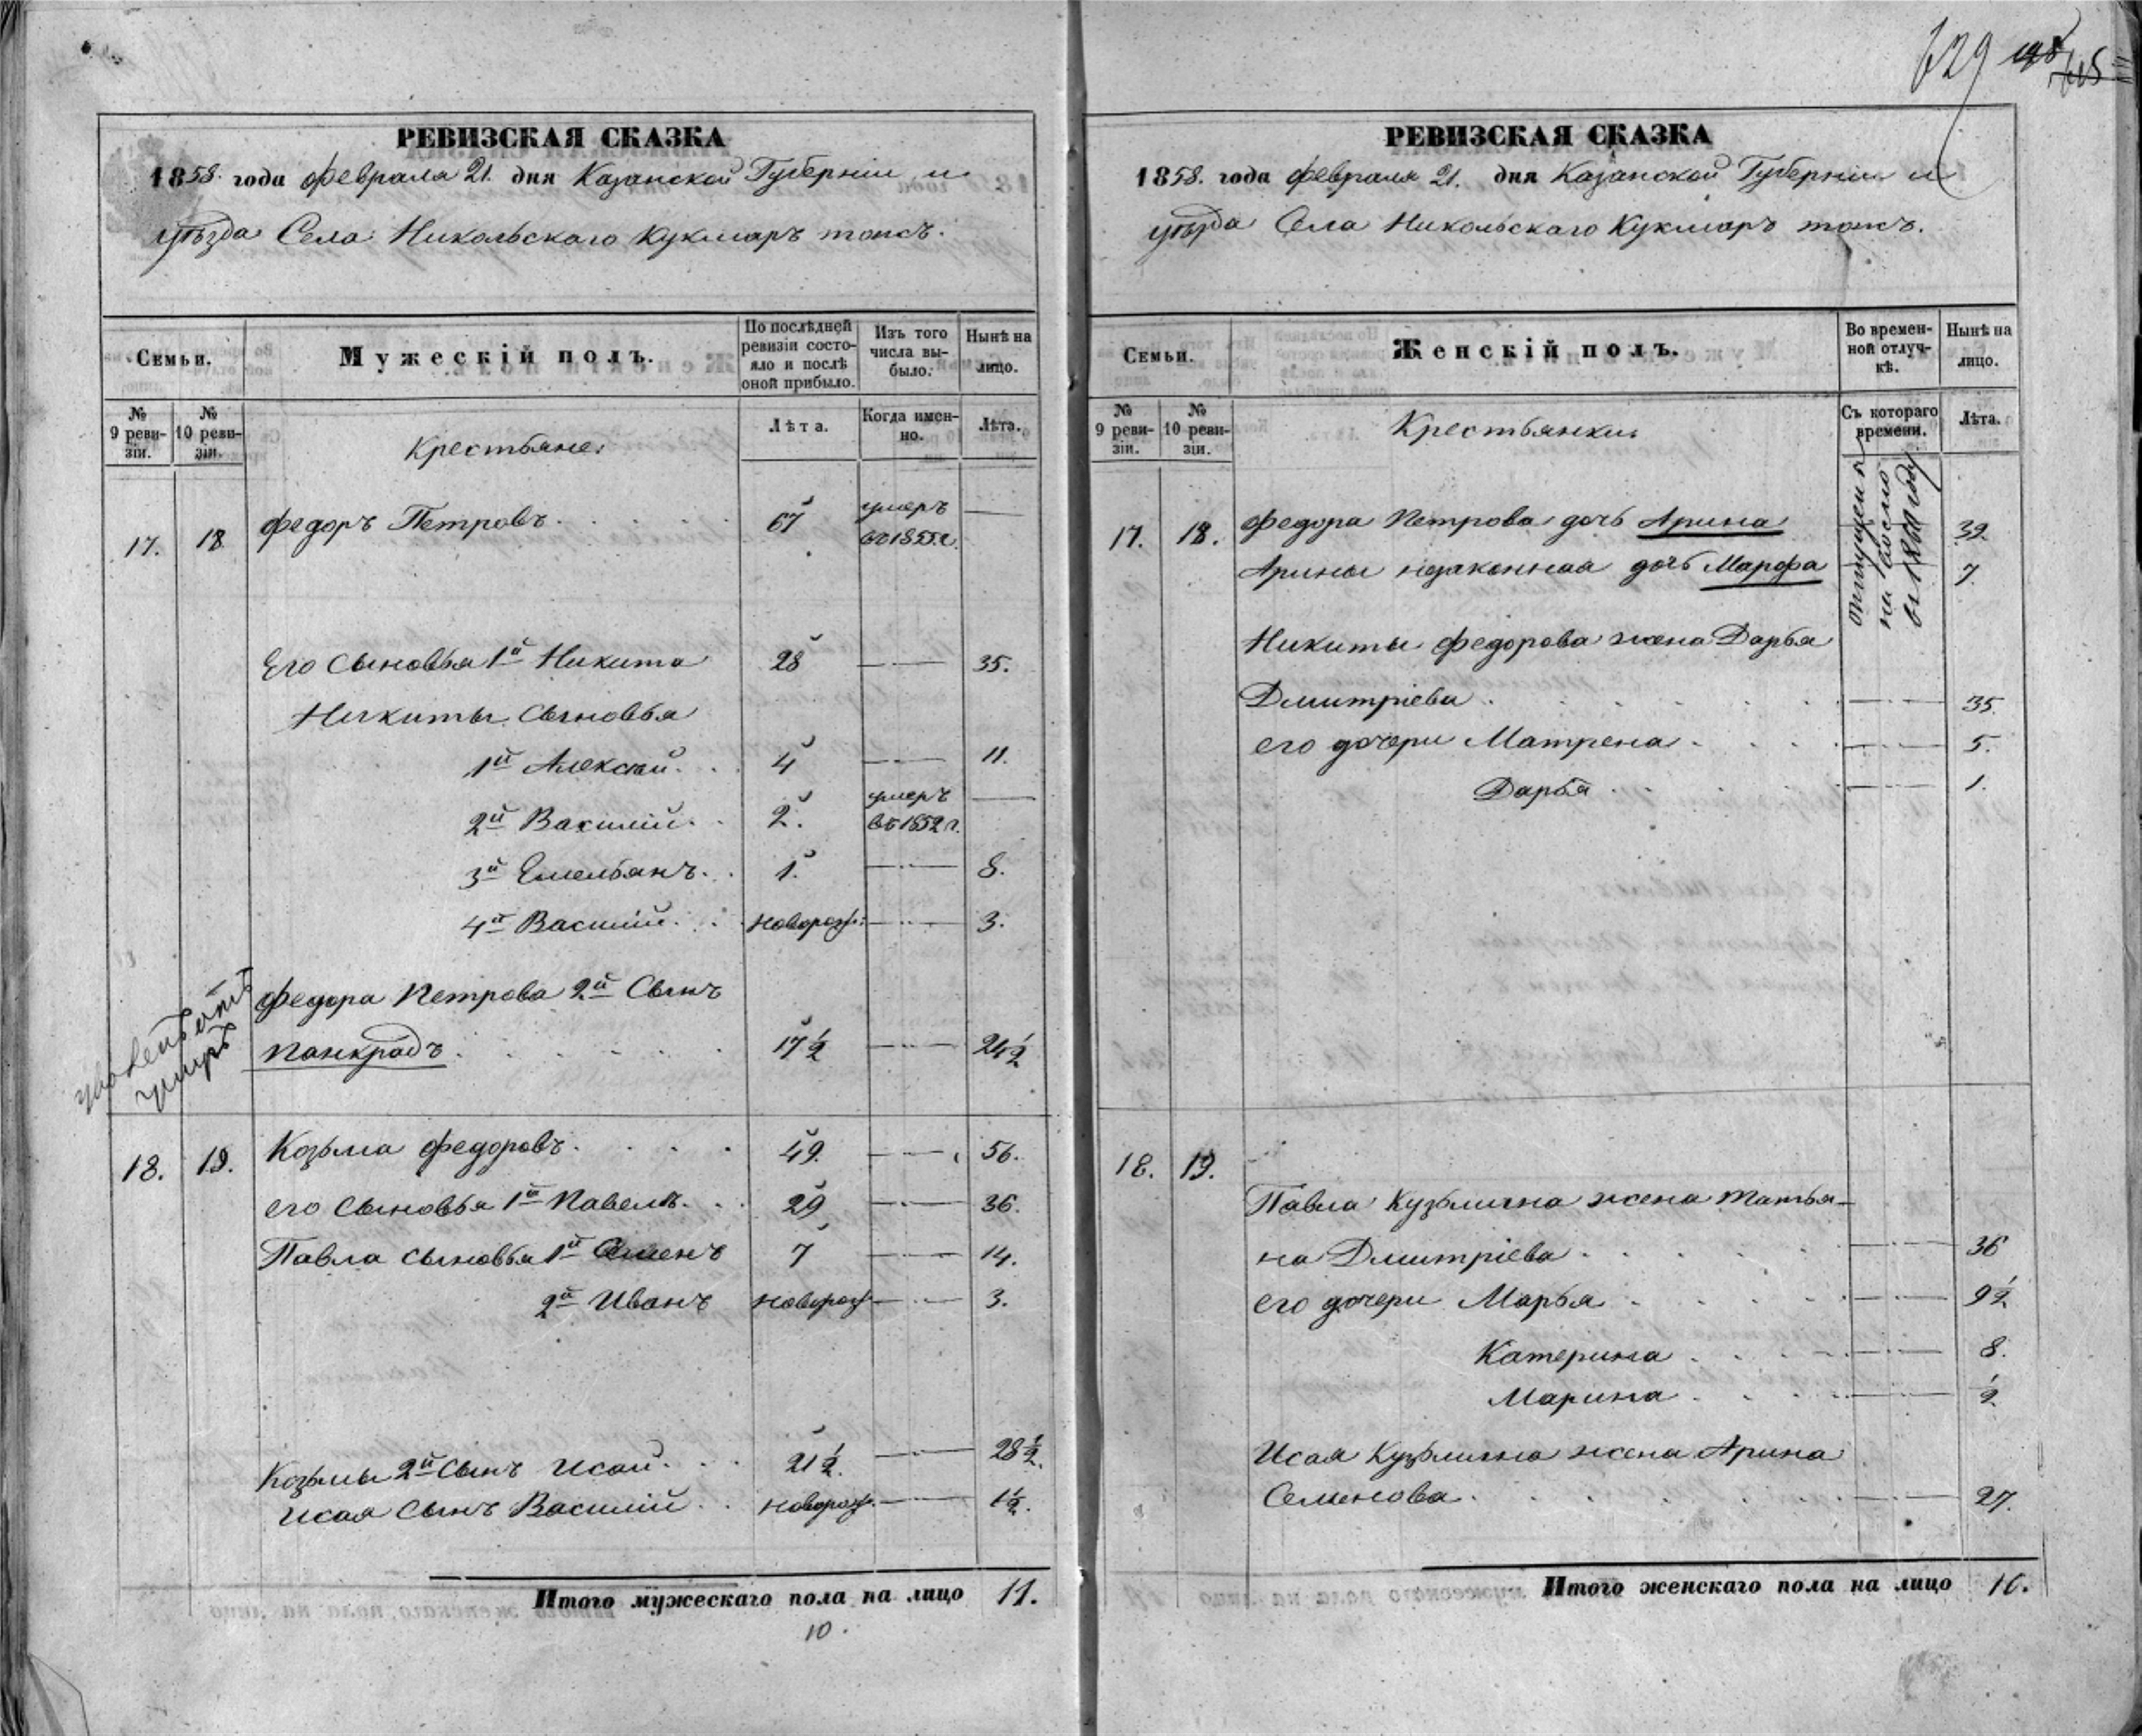 629
РЕВИЗСКАЯ СКАЗКА
1858. года февраля 21. дня Казанской Губерніи и
уѣзда Села Никольскаго Кукмаръ тожъ.
Семьи.
Мужескій полъ.
По послѣдней ревизіи состояло и послѣ оной прибыло.
Изъ того числа выбыло.
Нынѣ на лицо.
№ 9 ревизіи.
№ 10 ревизіи.
Крестьяне.
Лѣта.
Когда именно.
Лѣта.
17. 18. Федоръ Петровъ 67 умеръ въ 1855.г. —
Его Сыновья 1й Никита 28 — 35.
Никиты Сыновья
1й Алексѣй. 4 — 11.
2й Василій. 2. умеръ въ 1852 г. —
3й Емельянъ. 1. — 8.
4й Василій. новорож: — 3.
Федора Петрова 2й Сынъ
Панкрадъ 17 1/2 — 24 1/2
18. 19. Козьма Федоровъ 49. — 56.
его Сыновья 1й Павелъ. 29 — 36.
Павла Сыновья 1й Семенъ 7 — 14.
2й Иванъ новорож — 3.
Козьмы 2й Сынъ Исай. 21 1/2. — 28 1/2.
Исая Сынъ Василій новорож. — 1 1/2.
Итого мужескаго пола на лицо 11.
10.
РЕВИЗСКАЯ СКАЗКА
1858. года февраля 21. дня Казанской Губерніи и
уѣзда Села Никольскаго Кукмаръ тожъ.
Семьи.
Женскій полъ.
Во временной отлучкѣ.
Нынѣ на лицо.
№ 9 ревизіи.
№ 10 ревизіи.
Крестьянки.
Съ котораго времени.
Лѣта.
17. 18. Федора Петрова дочь Арина 39.
Арины незаконная дочь Марфа 7.
Никиты Федорова жена Дарья
Дмитріева — 35.
его дочери Матрена — 5.
Дарья — 1.
18. 19.
Павла Кузьмина жена Татья-
на Дмитріева — 36
его дочери Марья — 9 1/2
Катерина — 8.
Марина — 1/2
Исая Кузьмина жена Арина
Семенова — 27.
Итого женскаго пола на лицо 10.